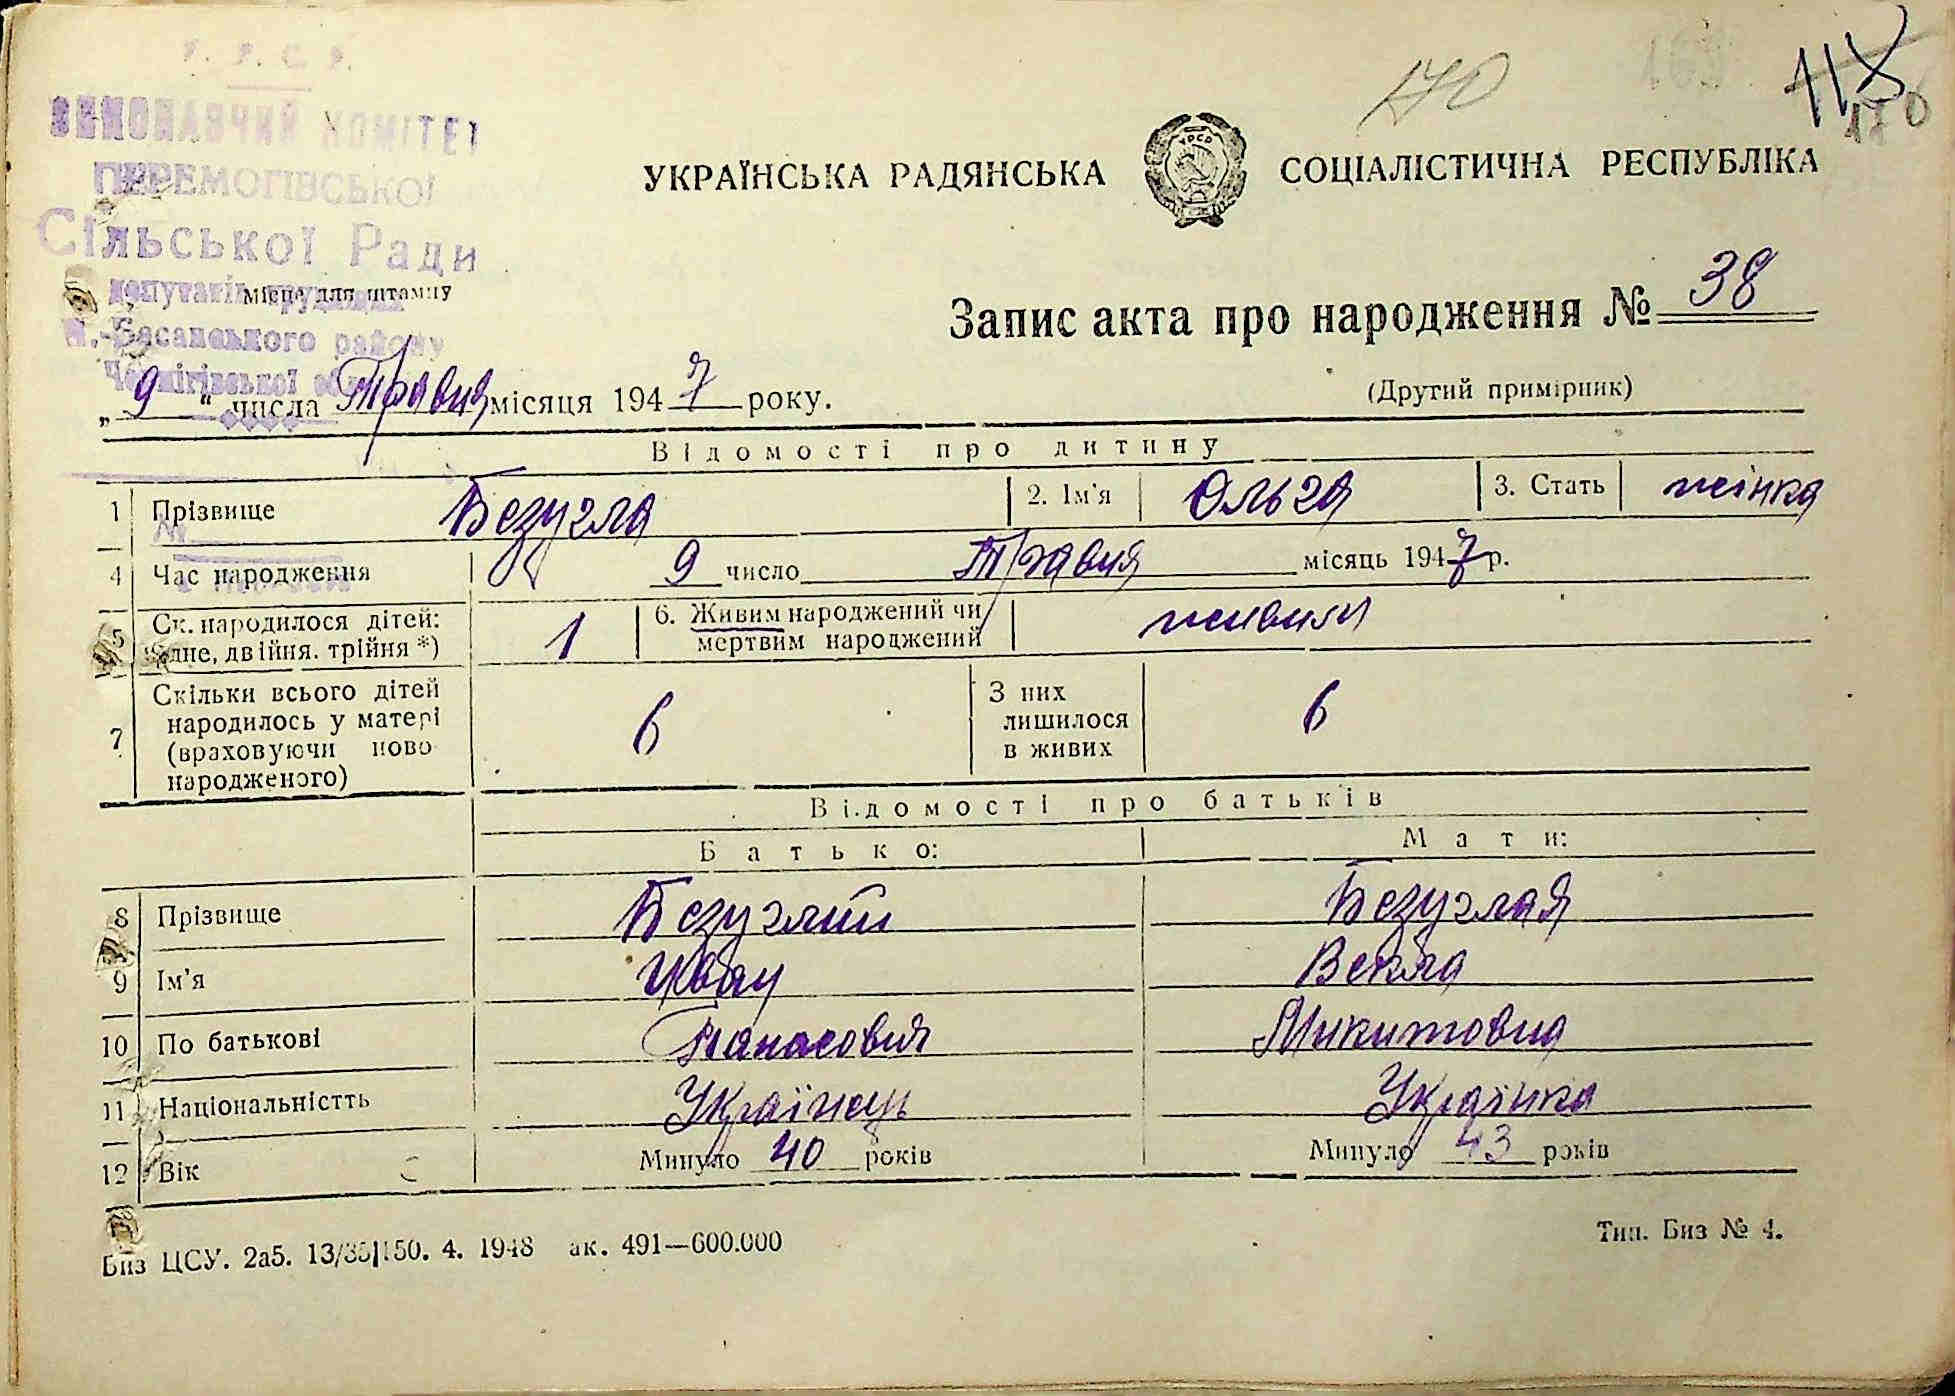 У. Р. С. Р.
ВИКОНАВЧИЙ КОМІТЕТ
ПЕРЕМОГІВСЬКОЇ
Сільської Ради
депутатів трудящих
місце для штампу
Н.-Басанського району
Чернігівської обл.
170
118
176
УКРАЇНСЬКА РАДЯНСЬКА СОЦІАЛІСТИЧНА РЕСПУБЛІКА
Запис акта про народження № 38
(Другий примірник)
„ 9 “ числа Травня місяця 1947 року.
Відомості про дитину
1 Прізвище Безугла 2. Ім'я Ольга 3. Стать жінка
4 Час народження 9 число Травня місяць 1947 р.
5 Ск. народилося дітей: одне, двійня, трійня *) 1 6. Живим народжений чи мертвим народжений живим
7 Скільки всього дітей народилось у матері (враховуючи ново народженого) 6 З них лишилося в живих 6
Відомості про батьків
Батько: Мати:
8 Прізвище Безуглий Безуглая
9 Ім'я Іван Векла
10 По батькові Панасович Микитовна
11 Національністть Українець Українка
12 Вік Минуло 40 років Минуло 43 років
Биз ЦСУ. 2а5. 13/35|150. 4. 1948 ак. 491—600.000
Тип. Биз № 4.